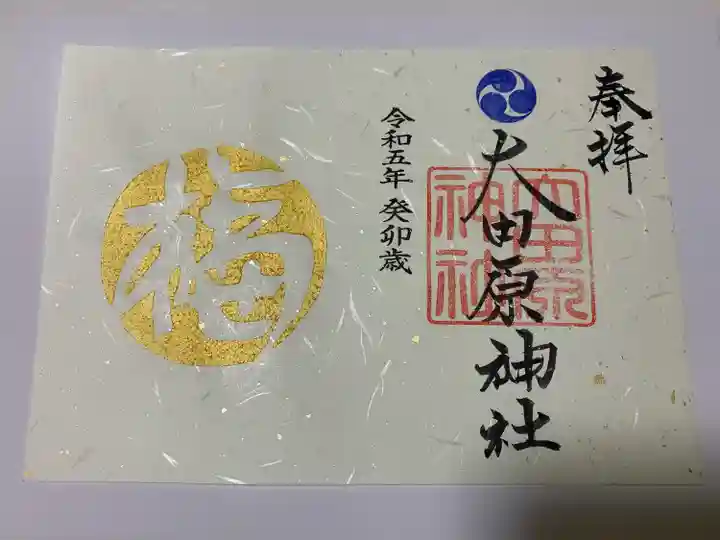 奉拝
大田原神社
大田原
神社
令和五年 癸卯歳
福